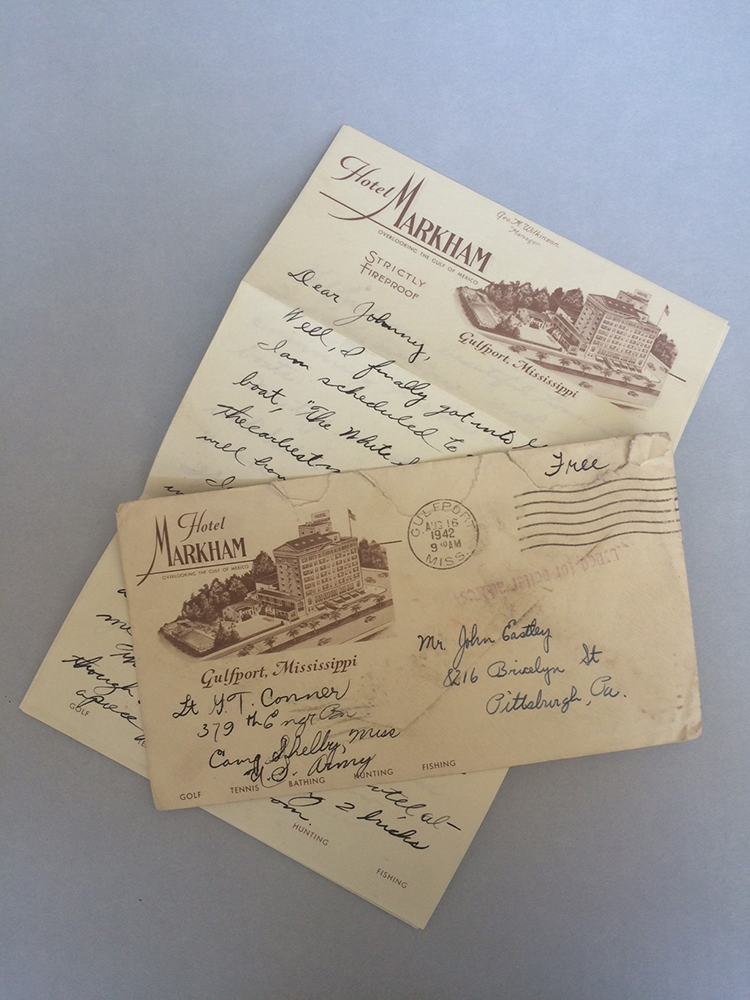 Hotel
MARKHAM
OVERLOOKING THE GULF OF MEXICO
Geo. H. Wilkinson
Manager
STRICTLY
FIREPROOF
Gulfport, Mississippi
Dear Johnny,
Well, I finally got into
I am scheduled to
boat, "The White
the earliest
well
I
me
though
apiece
GOLF
Hotel
MARKHAM
OVERLOOKING THE GULF OF MEXICO
Gulfport, Mississippi
Free
GULFPORT
AUG 16
1942
9 AM
MISS.
Mr. John Eastley
8216 Bricelyn St
Pittsburgh, Pa.
Lt G.T. Conner
379 th Engr Bn.
Camp Shelby, Miss
U.S. Army
GOLF TENNIS BATHING HUNTING FISHING
at-
2 bucks
HUNTING
FISHING